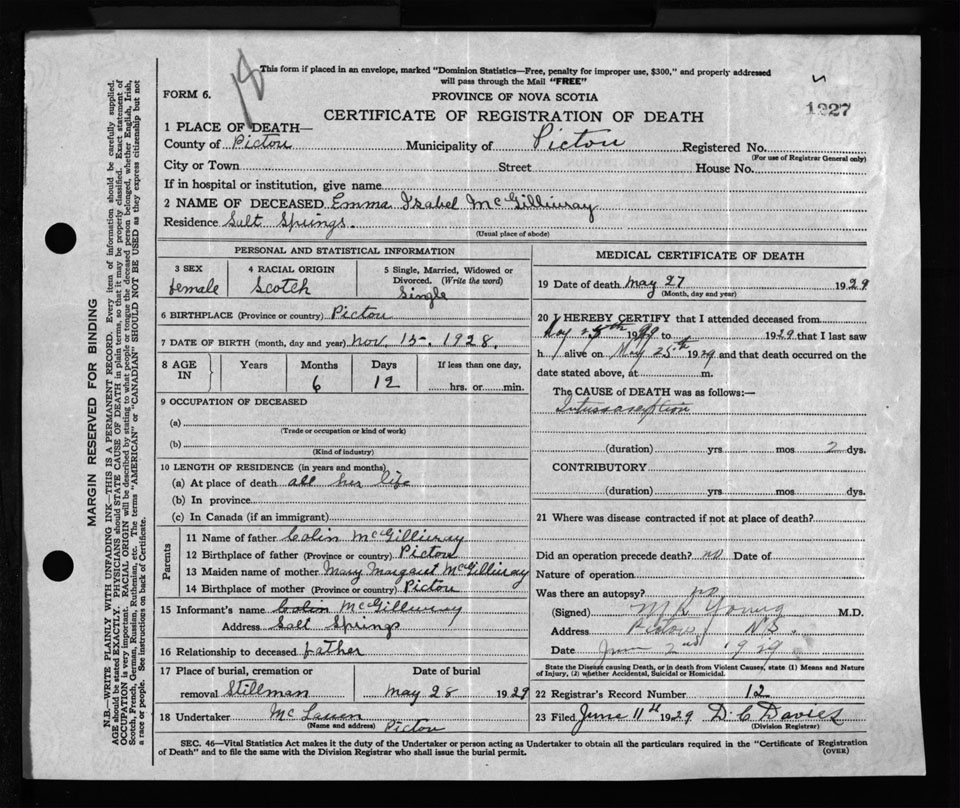 This form if placed in an envelope, marked "Dominion Statistics—Free, penalty for improper use, $300," and properly addressed
will pass through the Mail "FREE"
FORM 6.
PROVINCE OF NOVA SCOTIA
1227
CERTIFICATE OF REGISTRATION OF DEATH
1 PLACE OF DEATH—
County of Pictou Municipality of Pictou Registered No.
(For use of Registrar General only)
City or Town Street House No.
If in hospital or institution, give name
2 NAME OF DECEASED Emma Izabel McGillivray
Residence Salt Springs.
(Usual place of abode)
PERSONAL AND STATISTICAL INFORMATION
3 SEX 4 RACIAL ORIGIN 5 Single, Married, Widowed or
Divorced. (Write the word)
female Scotch Single
6 BIRTHPLACE (Province or country) Pictou
7 DATE OF BIRTH (month, day and year) Nov. 15-. 1928.
8 AGE IN Years Months Days If less than one day,
6 12 hrs. or min.
9 OCCUPATION OF DECEASED
(a)
(Trade or occupation or kind of work)
(b)
(Kind of industry)
10 LENGTH OF RESIDENCE (in years and months)
(a) At place of death all her life
(b) In province
(c) In Canada (if an immigrant)
Parents
11 Name of father Colin McGillivray
12 Birthplace of father (Province or country) Pictou
13 Maiden name of mother Mary Margaret McGillivray
14 Birthplace of mother (Province or country) Pictou
15 Informant's name Colin McGillivray
Address Salt Springs
16 Relationship to deceased father
17 Place of burial, cremation or Date of burial
removal Stillman May 28 1929
18 Undertaker
(Name and address) Pictou
MEDICAL CERTIFICATE OF DEATH
19 Date of death May 27 1929
(Month, day and year)
20 I HEREBY CERTIFY that I attended deceased from
to 1929 that I last saw
h alive on May 25th 1929 and that death occurred on the
date stated above, at m.
The CAUSE of DEATH was as follows:—
Intussusception
(duration) yrs. mos 2 dys.
CONTRIBUTORY
(duration) yrs. mos dys.
21 Where was disease contracted if not at place of death?
Did an operation precede death? no Date of
Nature of operation
Was there an autopsy? no
(Signed) M R Young M.D.
Address Pictou N.S.
Date June 2nd 1929
State the Disease causing Death, or in death from Violent Causes, state (1) Means and Nature
of Injury, (2) whether Accidental, Suicidal or Homicidal.
22 Registrar's Record Number 12
23 Filed June 11th 1929 D. C. Davies
(Division Registrar)
SEC. 46—Vital Statistics Act makes it the duty of the Undertaker or person acting as Undertaker to obtain all the particulars required in the "Certificate of Registration
of Death" and to file the same with the Division Registrar who shall issue the burial permit. (OVER)
MARGIN RESERVED FOR BINDING
N.B.—WRITE PLAINLY WITH UNFADING INK—THIS IS A PERMANENT RECORD. Every item of information should be carefully supplied.
AGE should be stated EXACTLY. PHYSICIANS should STATE CAUSE OF DEATH in plain terms, so that it may be properly classified. Exact statement of
OCCUPATION is very important. RACIAL ORIGIN will be described by stating to what people or tongue the deceased person belonged, whether English, Irish,
Scotch, French, German, Russian, Ruthenian, etc. The terms "AMERICAN" or "CANADIAN" SHOULD NOT BE USED as they express citizenship but not
a race or people. See instructions on back of Certificate.